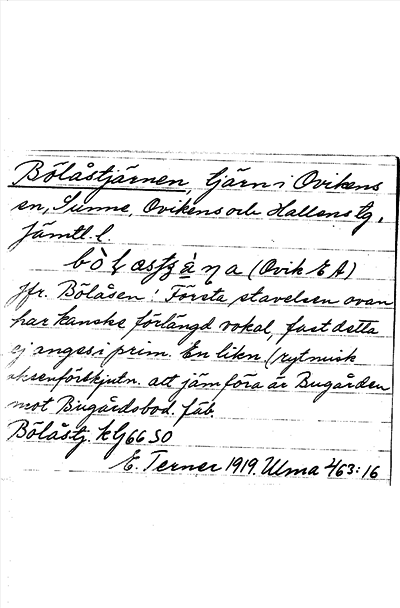 Bölåstjärnen, tjärn i Ovikens
sn, Sunne, Ovikens och Hallens tg,
Jämtl. l.
(Ovik E A)
Jfr. Bölåsen! Första stavelsen ovan
har kanske förlängd vokal, fast detta
ej anges i prim. En liken (rytmisk
aksenförskjutn. att jämföra är Bugården
mot Bugårdsbod. fäb.
Bölåstj. kG 66 SO
E. Terner 1919. Ulma 463:16